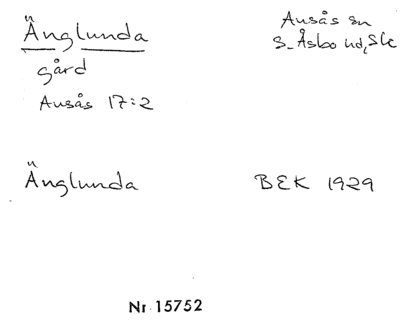 Änglunda
Ausås sn
S. Åsbo hd, Sk
gård
Ausås 17:2
Änglunda BEK 1929
Nr 15752